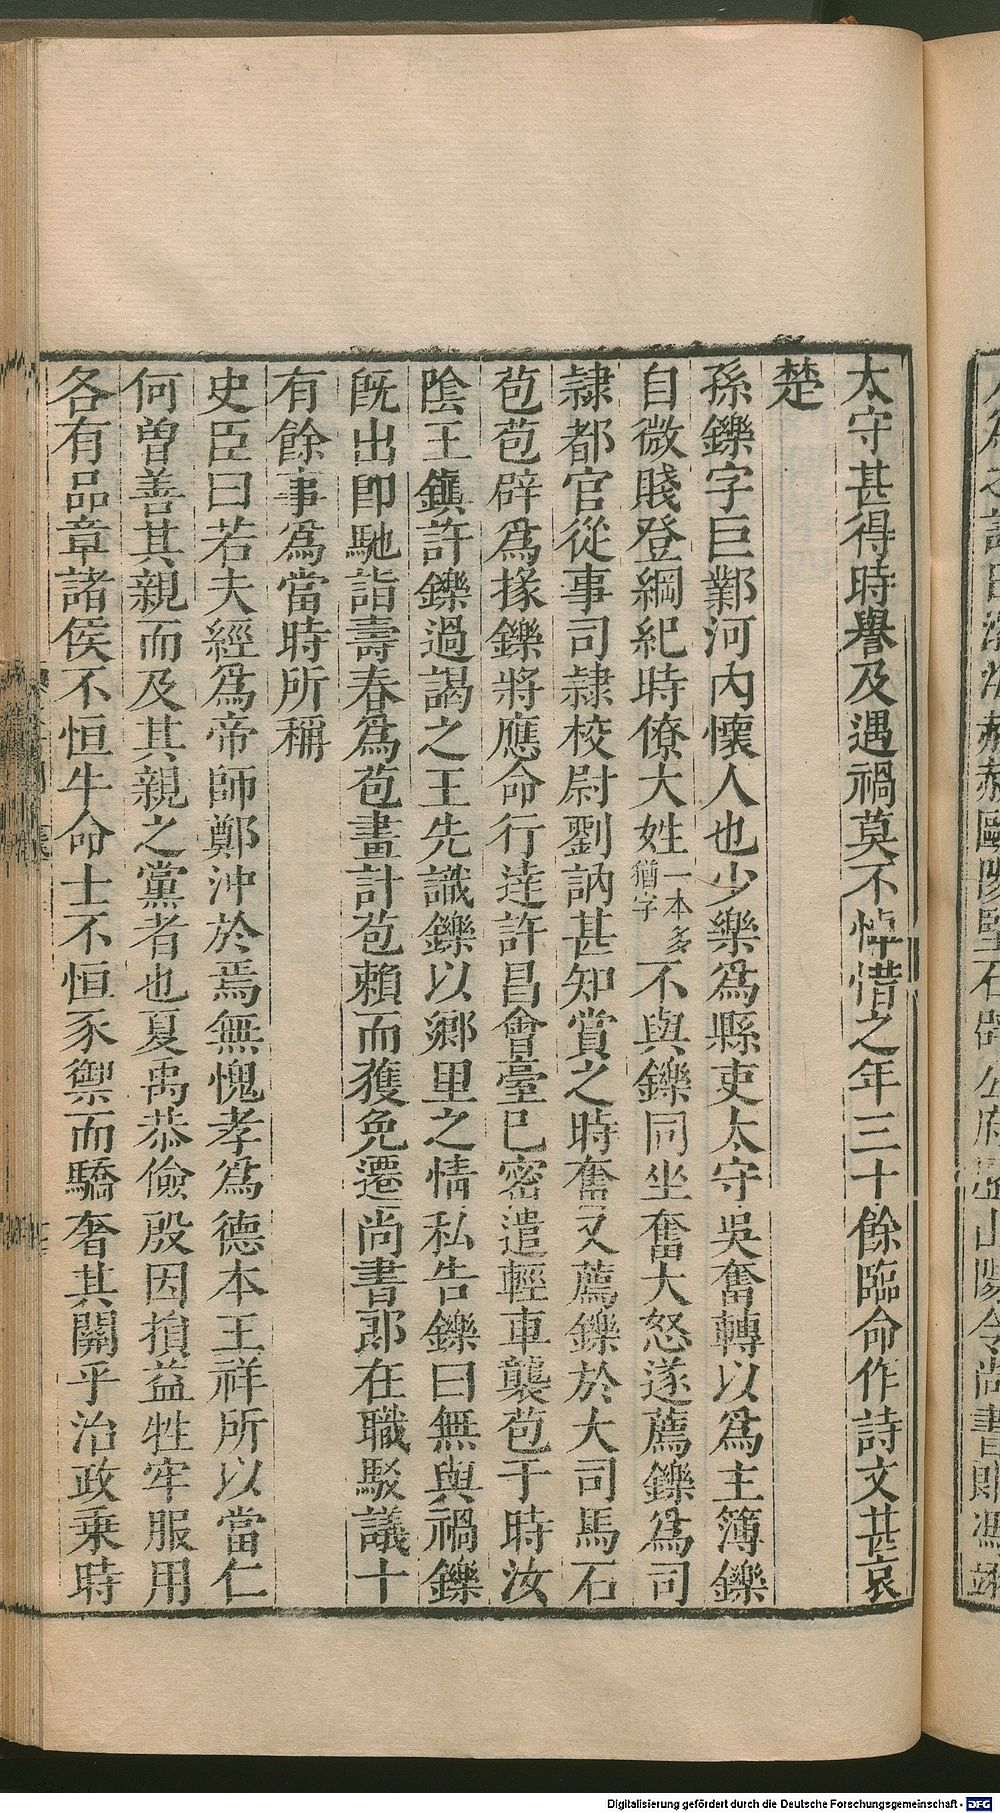 太守甚得時譽及遇禍莫不悼惜之年三十餘臨命作詩文甚哀
楚
孫鑠字巨鄴河內懷人也少樂為縣吏太守吳奮轉以為主簿鑠
自微賤登綱紀時僚大姓一本多猶字不與鑠同坐奮大怒遂薦鑠為司
隷都官從事司隷校尉劉訥甚知賞之時奮又薦鑠於大司馬石
苞苞辟為掾鑠將應命行達許昌會臺已密遣輕車襲苞于時汝
陰王鎮許鑠過謁之王先識鑠以鄉里之情私告鑠曰無與禍鑠
既出即馳詣壽春為苞畫計苞賴而獲免遷尚書郎在職駁議十
有餘事為當時所稱
史臣曰若夫經為帝師鄭沖於焉無愧孝為德本王祥所以當仁
何曾善其親而及其親之黨者也夏禹恭儉殷因損益牲牢服用
各有品章諸侯不恒牛命士不恒豕禦而驕奢其關乎治政乘時
Digitalisierung gefördert durch die Deutsche Forschungsgemeinschaft - DFG